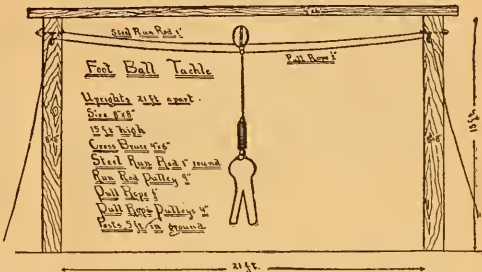 4"x6"
Steel Run Rod 1"
Pull Rope
Foot Ball Tackle
Uprights 21 ft apart.
Size 8"x8"
15 ft high
Cross Brace 4"x6"
Steel Run Rod 1" round
Run Rod Pulley 9"
Pull Rope
Pull Rope Pulleys 4"
Posts 5 ft in ground
8"x8"
8"x8"
15 ft.
21 ft.